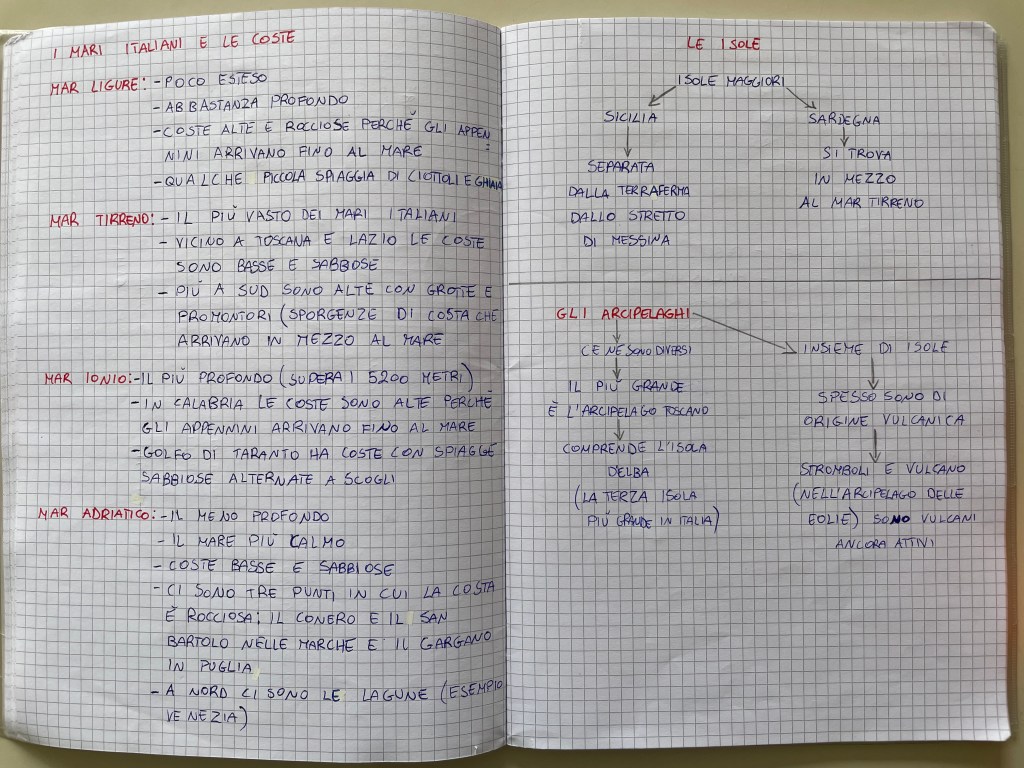 I MARI ITALIANI E LE COSTE
MAR LIGURE: - POCO ESTESO
- ABBASTANZA PROFONDO
- COSTE ALTE E ROCCIOSE PERCHÉ GLI APPEN
NINI ARRIVANO FINO AL MARE
- QUALCHE PICCOLA SPIAGGIA DI CIOTTOLI E GHIAIA
MAR TIRRENO: - IL PIÙ VASTO DEI MARI ITALIANI
- VICINO A TOSCANA E LAZIO LE COSTE
SONO BASSE E SABBIOSE
- PIÙ A SUD SONO ALTE CON GROTTE E
PROMONTORI (SPORGENZE DI COSTA CHE
ARRIVANO IN MEZZO AL MARE
MAR IONIO: - IL PIÙ PROFONDO (SUPERA I 5200 METRI)
- IN CALABRIA LE COSTE SONO ALTE PERCHÉ
GLI APPENNINI ARRIVANO FINO AL MARE
- GOLFO DI TARANTO HA COSTE CON SPIAGGE
SABBIOSE ALTERNATE A SCOGLI
MAR ADRIATICO: - IL MENO PROFONDO
- IL MARE PIÙ CALMO
- COSTE BASSE E SABBIOSE
- CI SONO TRE PUNTI IN CUI LA COSTA
È ROCCIOSA: IL CONERO E IL SAN
BARTOLO NELLE MARCHE E IL GARGANO
IN PUGLIA
- A NORD CI SONO LE LAGUNE (ESEMPIO
VENEZIA)
LE ISOLE
ISOLE MAGGIORI
SICILIA
SEPARATA
DALLA TERRAFERMA
DALLO STRETTO
DI MESSINA
SARDEGNA
SI TROVA
IN MEZZO
AL MAR TIRRENO
GLI ARCIPELAGHI
CE NE SONO DIVERSI
IL PIÙ GRANDE
È L'ARCIPELAGO TOSCANO
COMPRENDE L'ISOLA
D'ELBA
(LA TERZA ISOLA
PIÙ GRANDE IN ITALIA)
INSIEME DI ISOLE
SPESSO SONO DI
ORIGINE VULCANICA
STROMBOLI E VULCANO
(NELL'ARCIPELAGO DELLE
EOLIE) SONO VULCANI
ANCORA ATTIVI